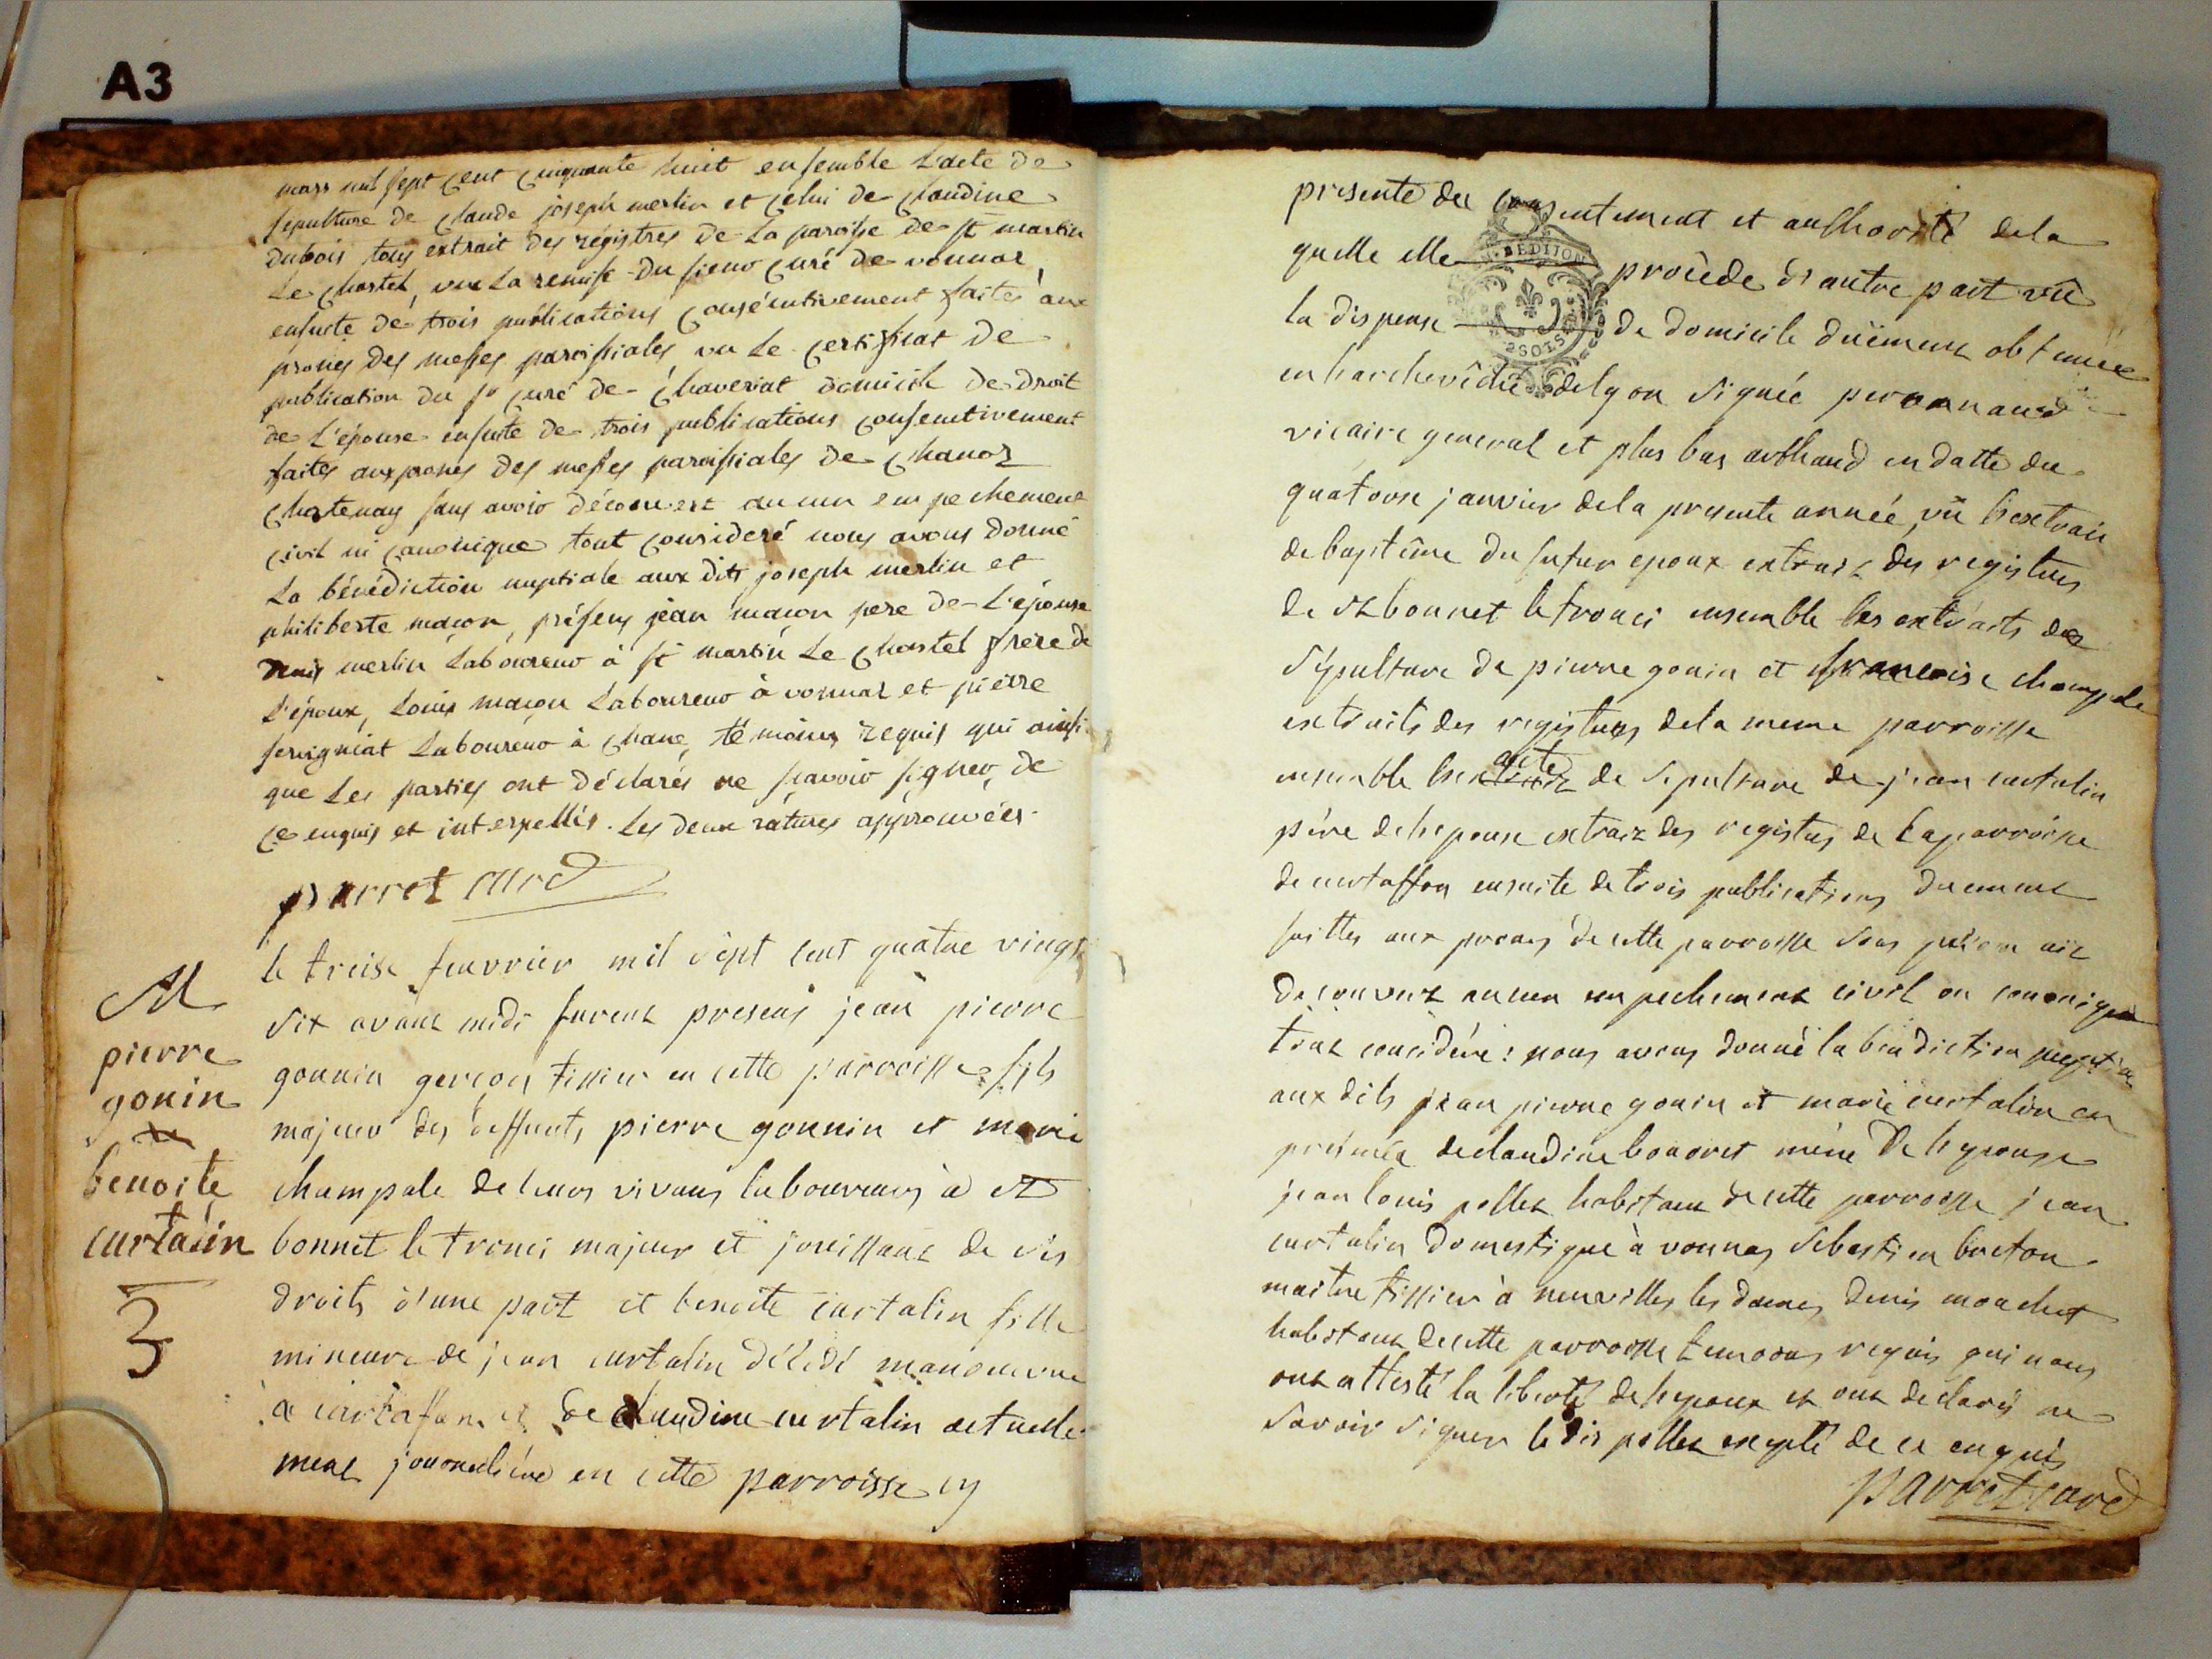 A3
mars mil sept cent cinquante huit ensemble L'acte de
sépulture de claude joseph merlin et celui de claudine
dubois tous extrait des régistres de La paroisse de st martin
Le chastel, vue La remise du sieur curé de vonnas
ensuite de trois publications consécutivement faites aux
prones des messes paroissiales, vu Le certificat de
publication du sr curé de chaveriat domicile de droit
de L'épouse ensuite de trois publications consecutivement
faites aux prones des messes paroissiales de chanoz
chatenay sans avoir découvert aucun empechement
civil ni canonique tout consideré nous avons donné
La bénédiction nuptiale aux dits joseph merlin et
philiberte maçon, présens jean maçon pere de L'épouse
denis merlin Laboureur à st martin Le chastel frere de
L'époux, Louis maçon Laboureur à vonnas et pierre
Laboureur à chane, témoins requis qui ainsi
que Les parties ont déclarés ne sçavoir signer, de
ce enquis et interpellés. Les deux ratures approuvées.
parret curé
M
pierre
gonin
benoite
curtalin
3
le treise feuvrier mil sept cent quatre vingt
six avant midi furent presens jean pierre
gonnin garçon tissier en cette parroisse fils
majeur des deffunts pierre gonnin et marie
champale de leurs vivans laboureurs à st
bonnet le tronci majeur et jouissant de ses
droits d'une part et benoite curtalin fille
mineure de jean curtalin décédé manoeuvre
à curtafon et de claudine curtalin actuelle
ment journaliére en cette parroisse cy
presente du consentement et authorité dela
quelle elle procède d'autre part vû
la dispense de domicile duëment obtenüe
en larchevêché de lyon signée
vicaire general et plus bas arthaud en datte du
quatorse janvier dela presente année, vû l'extrait
de baptême du futur epoux extrait des registres
de st bonnet le tronci ensemble les extraits de
sépulture de pierre gonin et francoise champale
extraits des registres dela meme parroisse
acte
ensemble de sepulture de jean curtalin
père de lepouse extrait des registres de la parroisse
de curtaffon ensuite de trois publications duement
faittes aux prones de cette parroisse sans qu'on ait
decouvert aucun empechement civil ou canonique
tout considéré: nous avons donné la bénédiction nuptiale
aux dits jean pierre gonin et marie curtalin en
présence de claudine bonoret mère de l'epouse
jean louis pollet habitant de cette parroisse jean
curtalin domestique à vonnas sebastien breton
maitre tissier à neuvilles les dames denis
habitant de cette parroisse temoins requis qui nous
ont attesté la liberté de lepoux et ont declarés ne
savoir signer le dit pollet excepté de ce enquis
parret curé